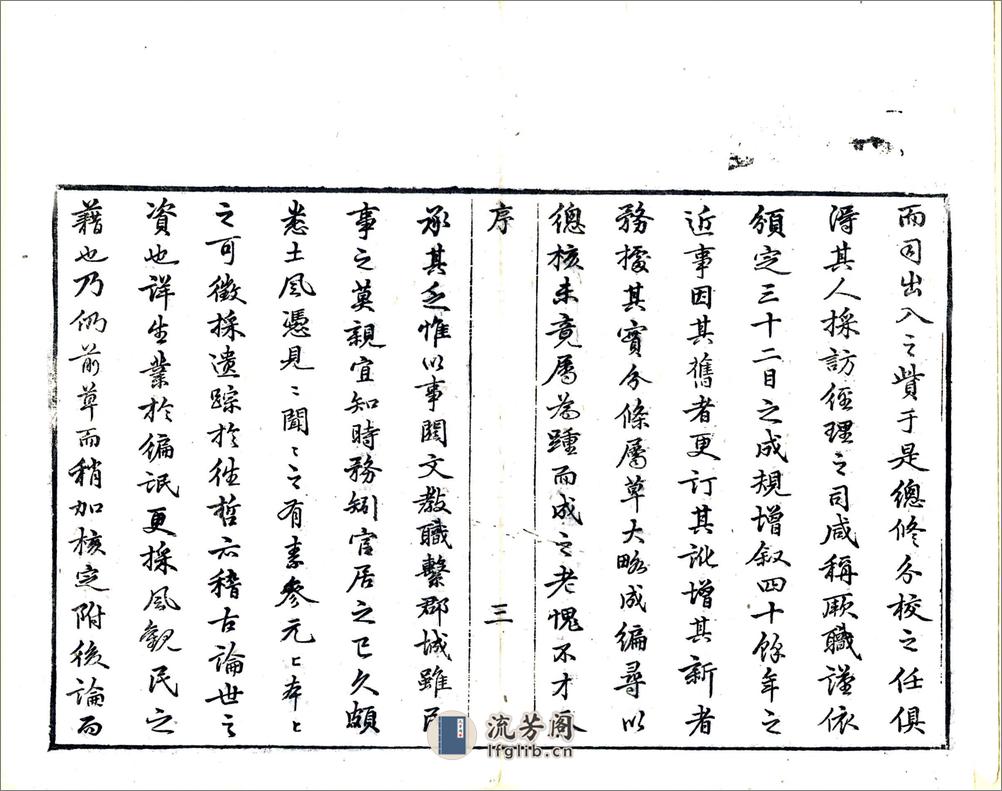 而司出入之費于是總修分校之任俱
得其人採訪經理之司咸稱厥職謹依
頒定三十二目之成規增叙四十餘年之
近事因其舊者更訂其訛增其新者
務據其實分條屬草大略成編尋以
總核未竟屬為踵而成之老愧不才
序
三
承其乏惟以事關文教職繫郡城雖
事之莫親宜知時務矧官居之已久頗
悉土風憑見〻聞〻之有素參元〻本〻
之可徵採遺踪於往哲亦稽古論世之
資也詳生業於編氓更採風觀民之
藉也乃仍前草而稍加核定附後論而
流芳阁
lfglib.cn